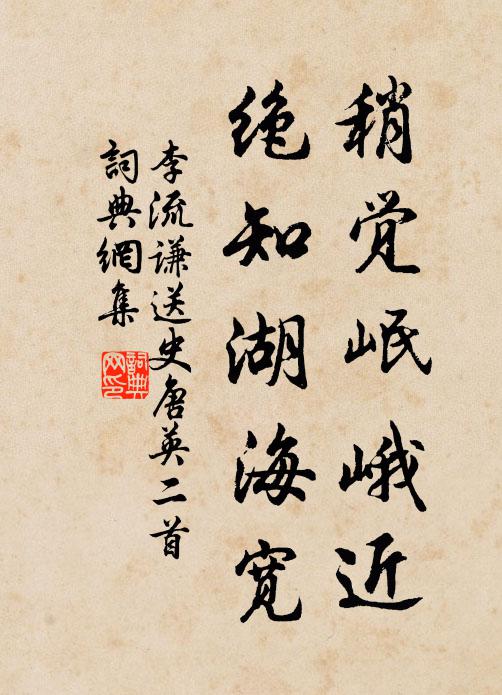 稍觉岷峨近
绝知湖海宽
李流谦送史唐英二首
詞典網集
詞典网印